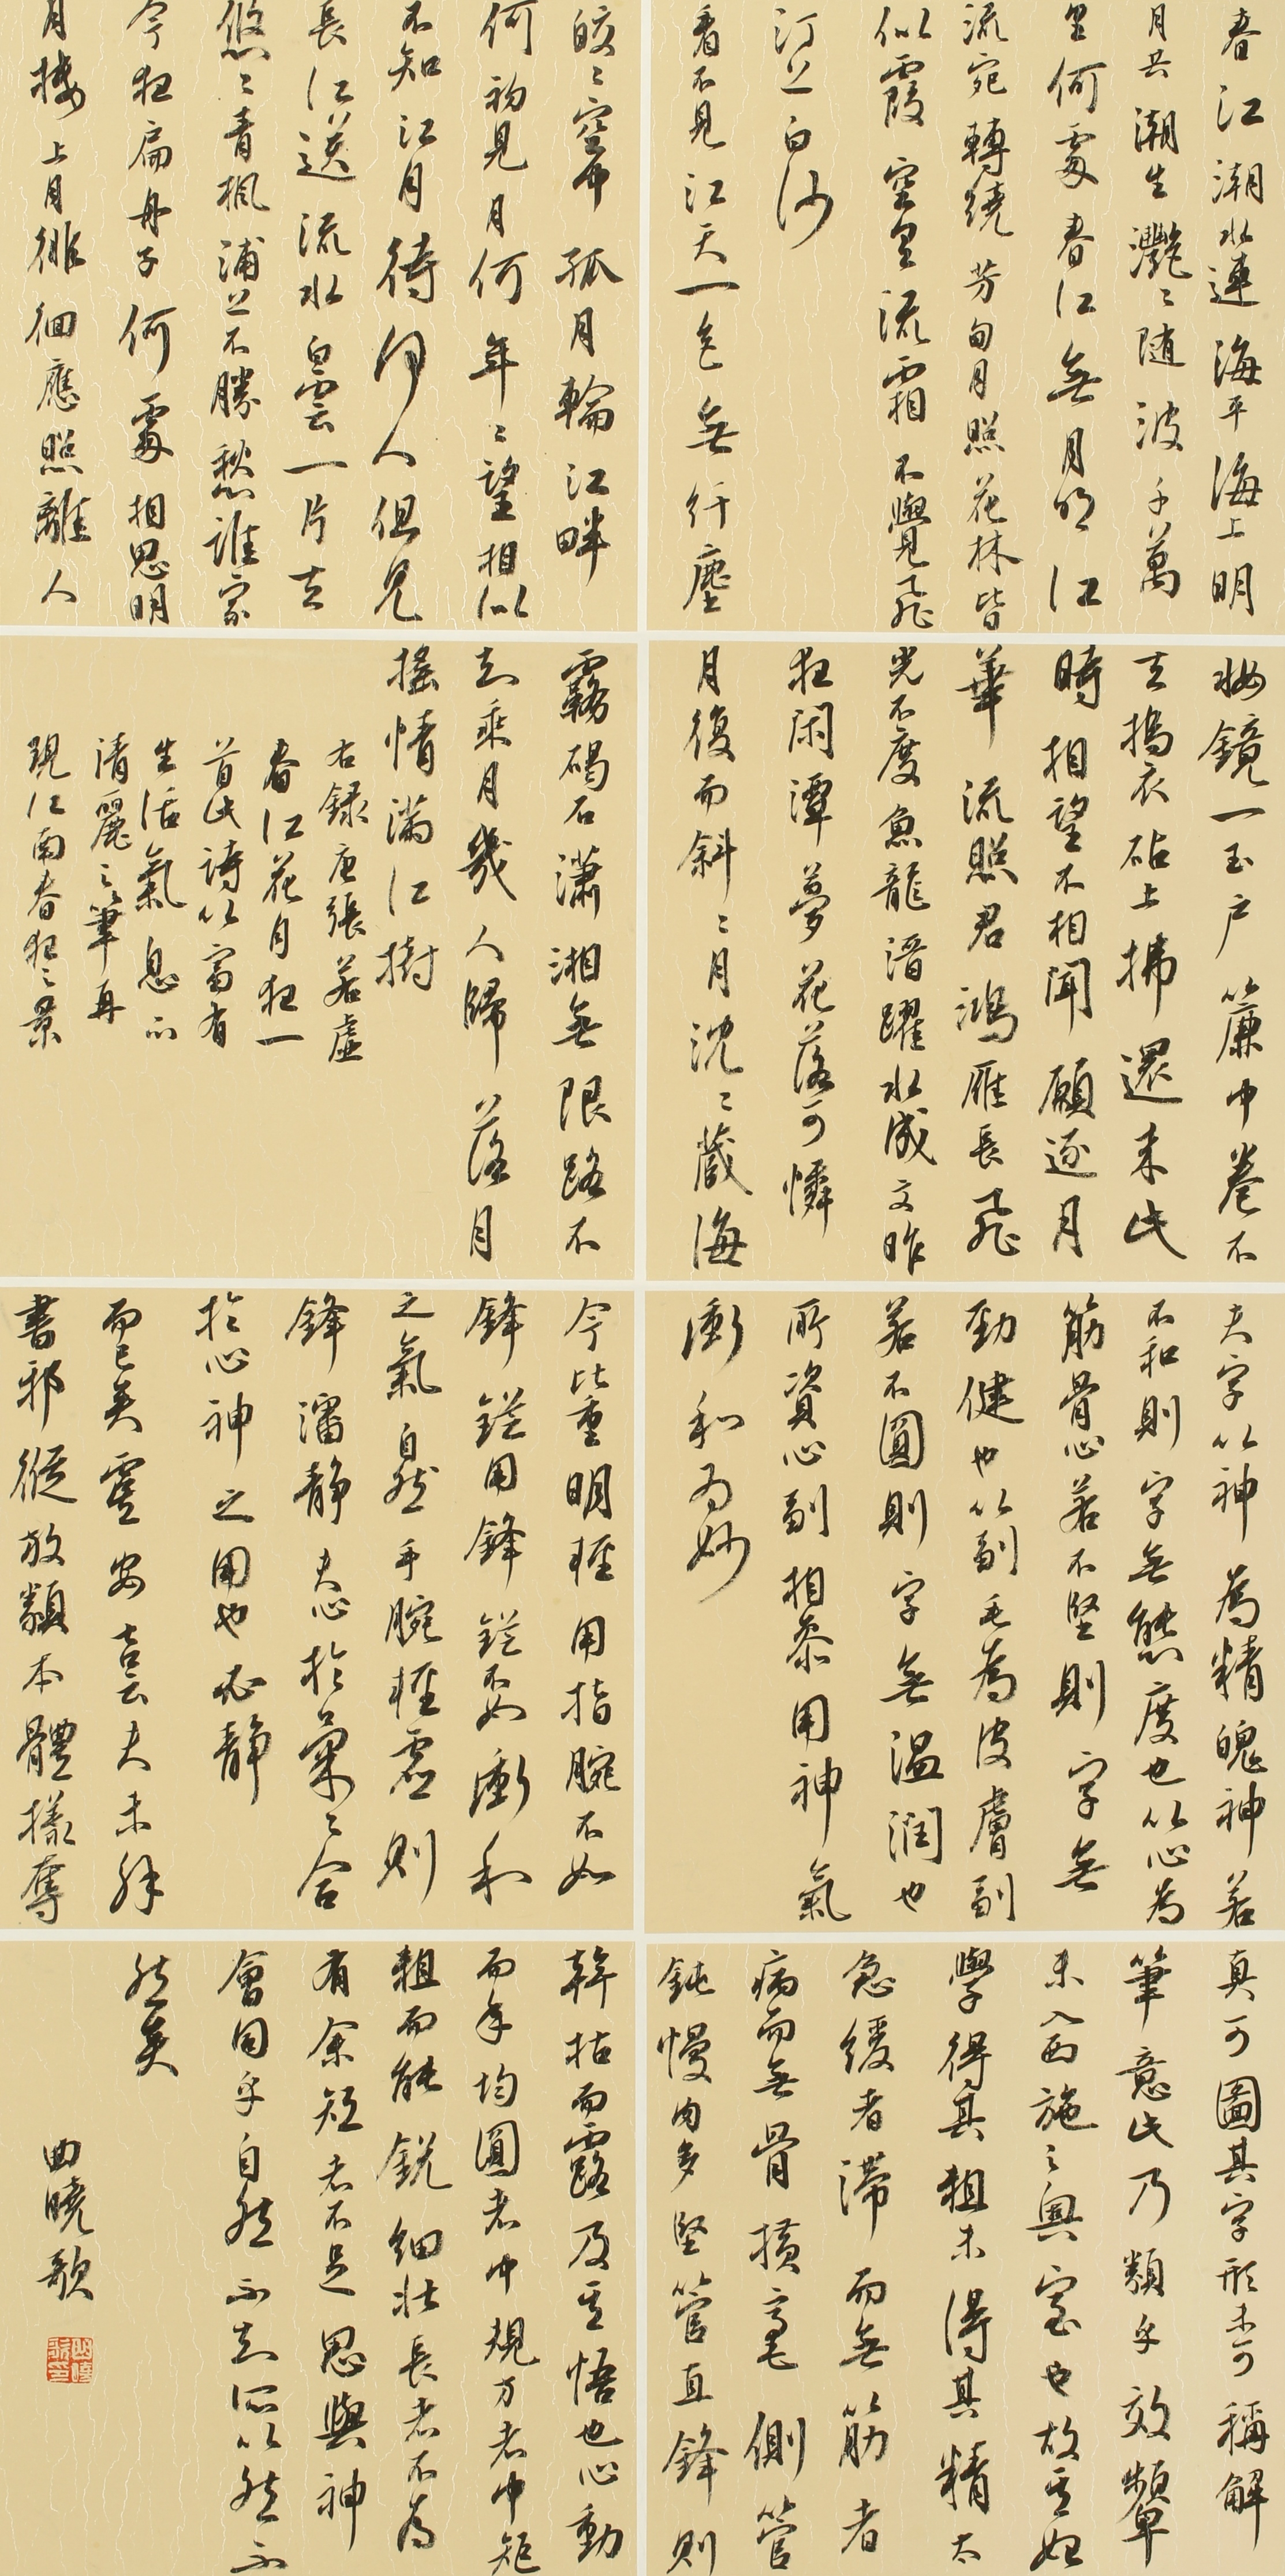 春江潮水連海平海上明
月共潮生灧〻随波千萬
里何處春江無月明江
流宛轉繞芳甸月照花林皆
似霰空里流霜不覺飛
汀上白沙
看不見江天一色無纤塵
皎〻空中孤月輪江畔
何初見月何年〻望相似
不知江月待何人但見
長江送流水白雲一片去
悠〻青楓浦上不勝愁誰家
今夜扁舟子何處相思明
月樓上月徘徊應照離人
妝鏡一玉户簾中卷不
去搗衣砧上拂還来此
時相望不相聞願逐月
華流照君鴻雁長飛
光不度魚龍潛躍水成文昨
夜閑潭夢花落可憐
月復而斜〻月沈〻藏海
霧碣石瀟湘無限路不
知乘月幾人歸落月
搖情滿江樹
右録唐張若虚
春江花月夜一
首此詩以富有
生活氣息而
清麗之筆再
現江南春夜之景
夫字以神為精魄神若
不和則字無態度也以心為
筋骨心若不堅則字無
勁健也以副毛為皮膚副
若不圓則字無温润也
所資心副相参用神氣
衝和为妙
今比重明輕用指腕不如
鋒鋩用鋒鋩不如衝和
之氣自然手腕輕虚則
鋒潘静夫心於氣〻合
於心神之用也必静
而已矣虞安吉云夫未解
書邪縱放類本體樣奪
真可圖其字形未可稱解
筆意此乃類乎效顰
未入西施之奥室也故其始
學得其粗未得其精太
急緩者滞而無筋者
病而無骨横毫側管
鈍慢肉多竖管直鋒則
幹枯而露及其悟也心動
而手均圓者中規方者中矩
粗而能鋭細壮長者不為
有余短者不足思與神
會同乎自然不知所以然而
然矣
曲曉歌